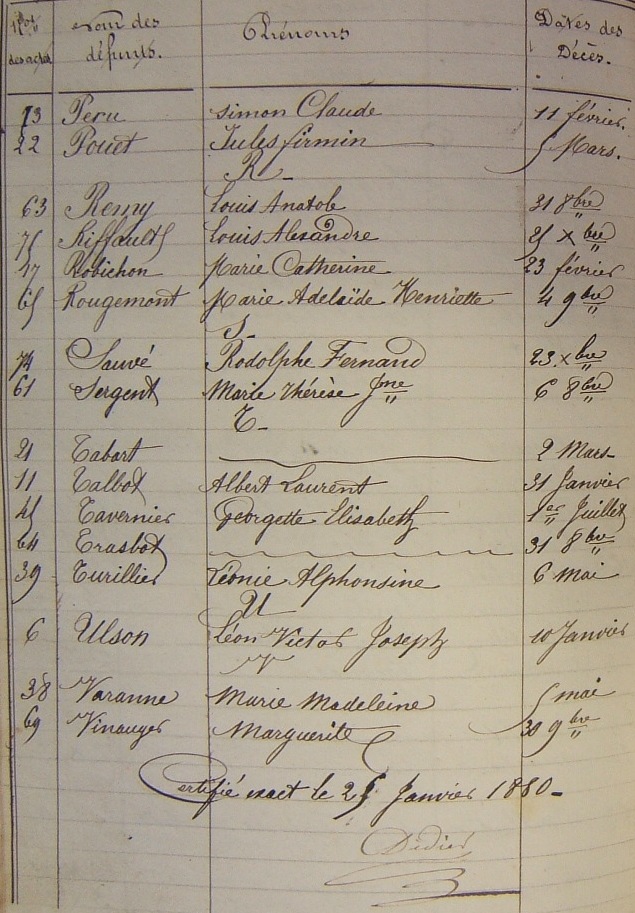 Nos des actes Nom des défunts. Prénoms Dates des Décès.
13 Peru Simon Claude 11 février.
22 Pouet Jules firmin 5 Mars.
R_
63 Remy Louis Anatole 31 8bre
75 Riffault Louis Alexandre 25 Xbre
17 Robichon Marie Catherine 23 février
65 Rougemont Marie Adelaïde Henriette 4 9bre
S_
74 Sauvé Rodolphe Fernand 23 Xbre
61 Sergent Marie Thérèse Jme 6 8bre
T_
21 Tabart 2 Mars_
11 Talbot Albert Laurent 31 Janvier
45 Tavernier Georgette Elisabeth 1er Juillet
64 Trasbot 31 8bre
39 Turillier Léonie Alphonsine 6 Mai
U
6 Ulson Léon Victor Joseph 10 Janvier
V
38 Varanne Marie Madeleine 5 mai
69 Vinauger Marguerite 30 9bre
Certifié exact le 25 Janvier 1880_
Didier